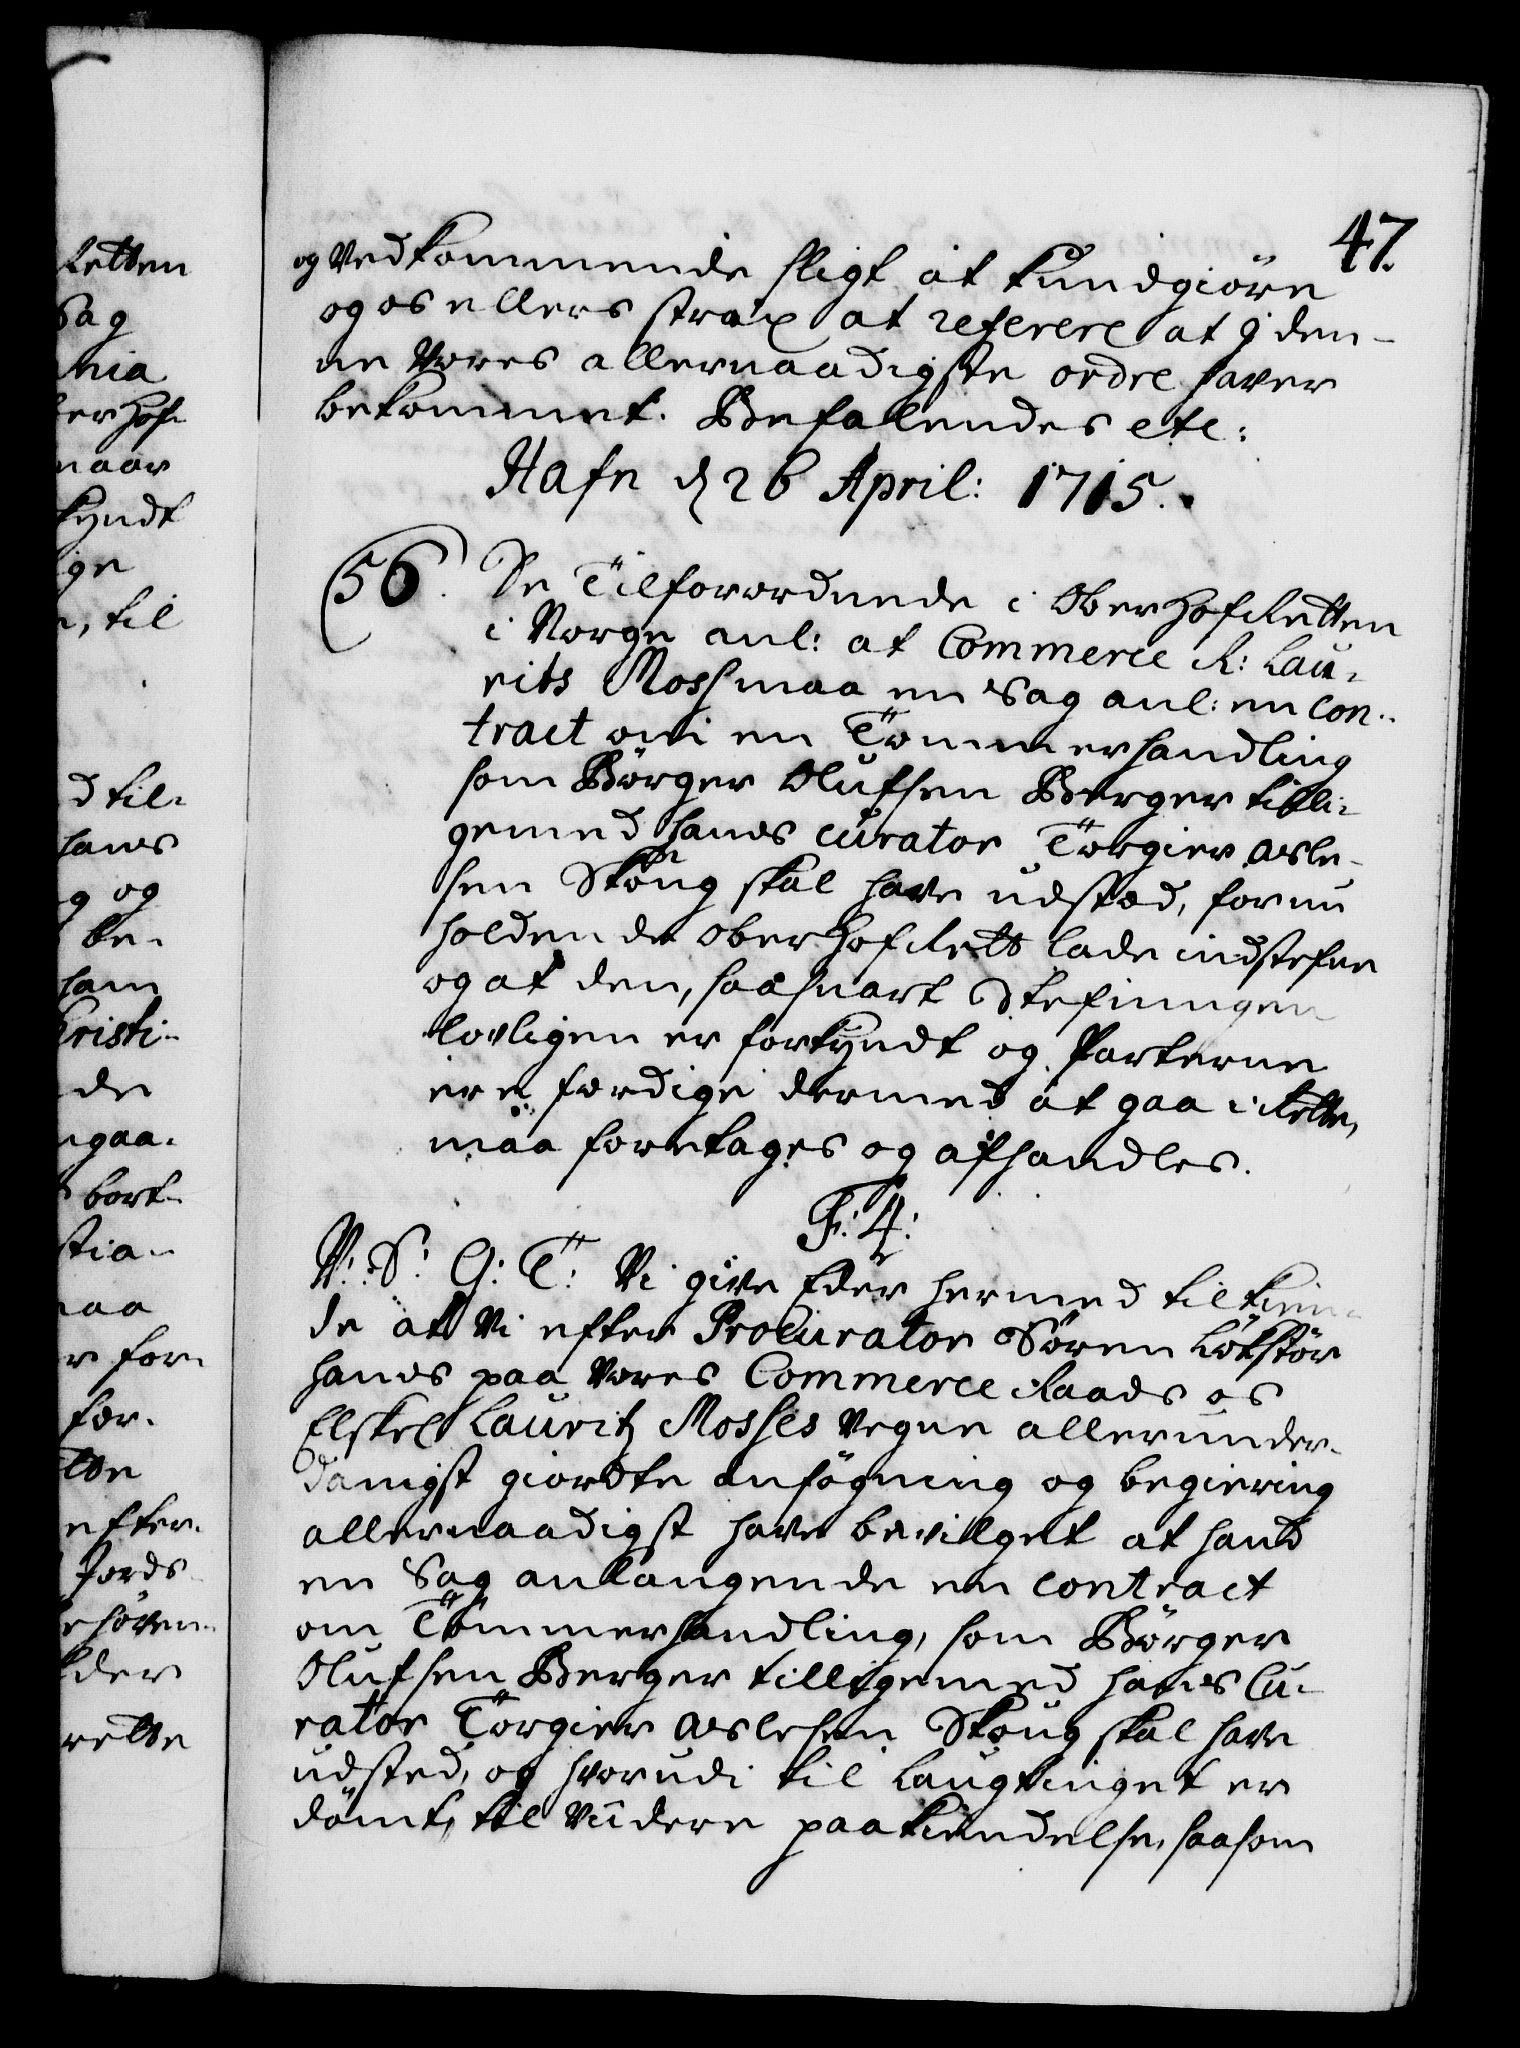 47.
og Vedkommende sligt at kundgiöre
og os ellers strax at referere at I den-
ne Vores allernaadigste ordre haver
bekommet. Befalendes etc:
Hafn d 26 April: 1715.
56. De Tilforordnede i OberHofRetten
i Norge anl: at Commerce R: Lau-
rits Moss maa en Sag anl: en Con-
tract om en Tömmerhandling
som Börger Olufsen Berger tilli-
gemed hans Curator Torgier Asle-
sen Skoug skal have udsted, for nu
holdende OberHofRett lade indstefne
og at den, saasnart Stefningen
lovligen er forkyndt og Parterne
ere færdige dermed at gaa i Rette,
maa foretages og afhandles.
F: 4:
V: S: G: T: Vi give Eder hermed tilkien-
de at Vi efter Procurator Sören Lökstör
hans paa Vores Commerce Raads os
Elskel Lauritz Mosses Vegne allerunder-
danigst giordte ansögning og begiering
allernaadigst have bevilget at hand
en Sag anlangende en Contract
om Tömmerhandling, som Börger
Olufsen Berger tilligemed hans Cu-
rator Torgier Aslesen Skoug skal have
udsted, og hvorudi til Laugtinget er
dömt, til Viidere paakiendelse, saasom
Retten
Sag
nia
er Hof-
naar
kyndt
ge
til
d til-
hans
g og
be-
ham
Cristi-
de
ngaa-
bort-
stia-
maa
r for-
for-
tte
efter-
Jords-
ehöven-
der
rette